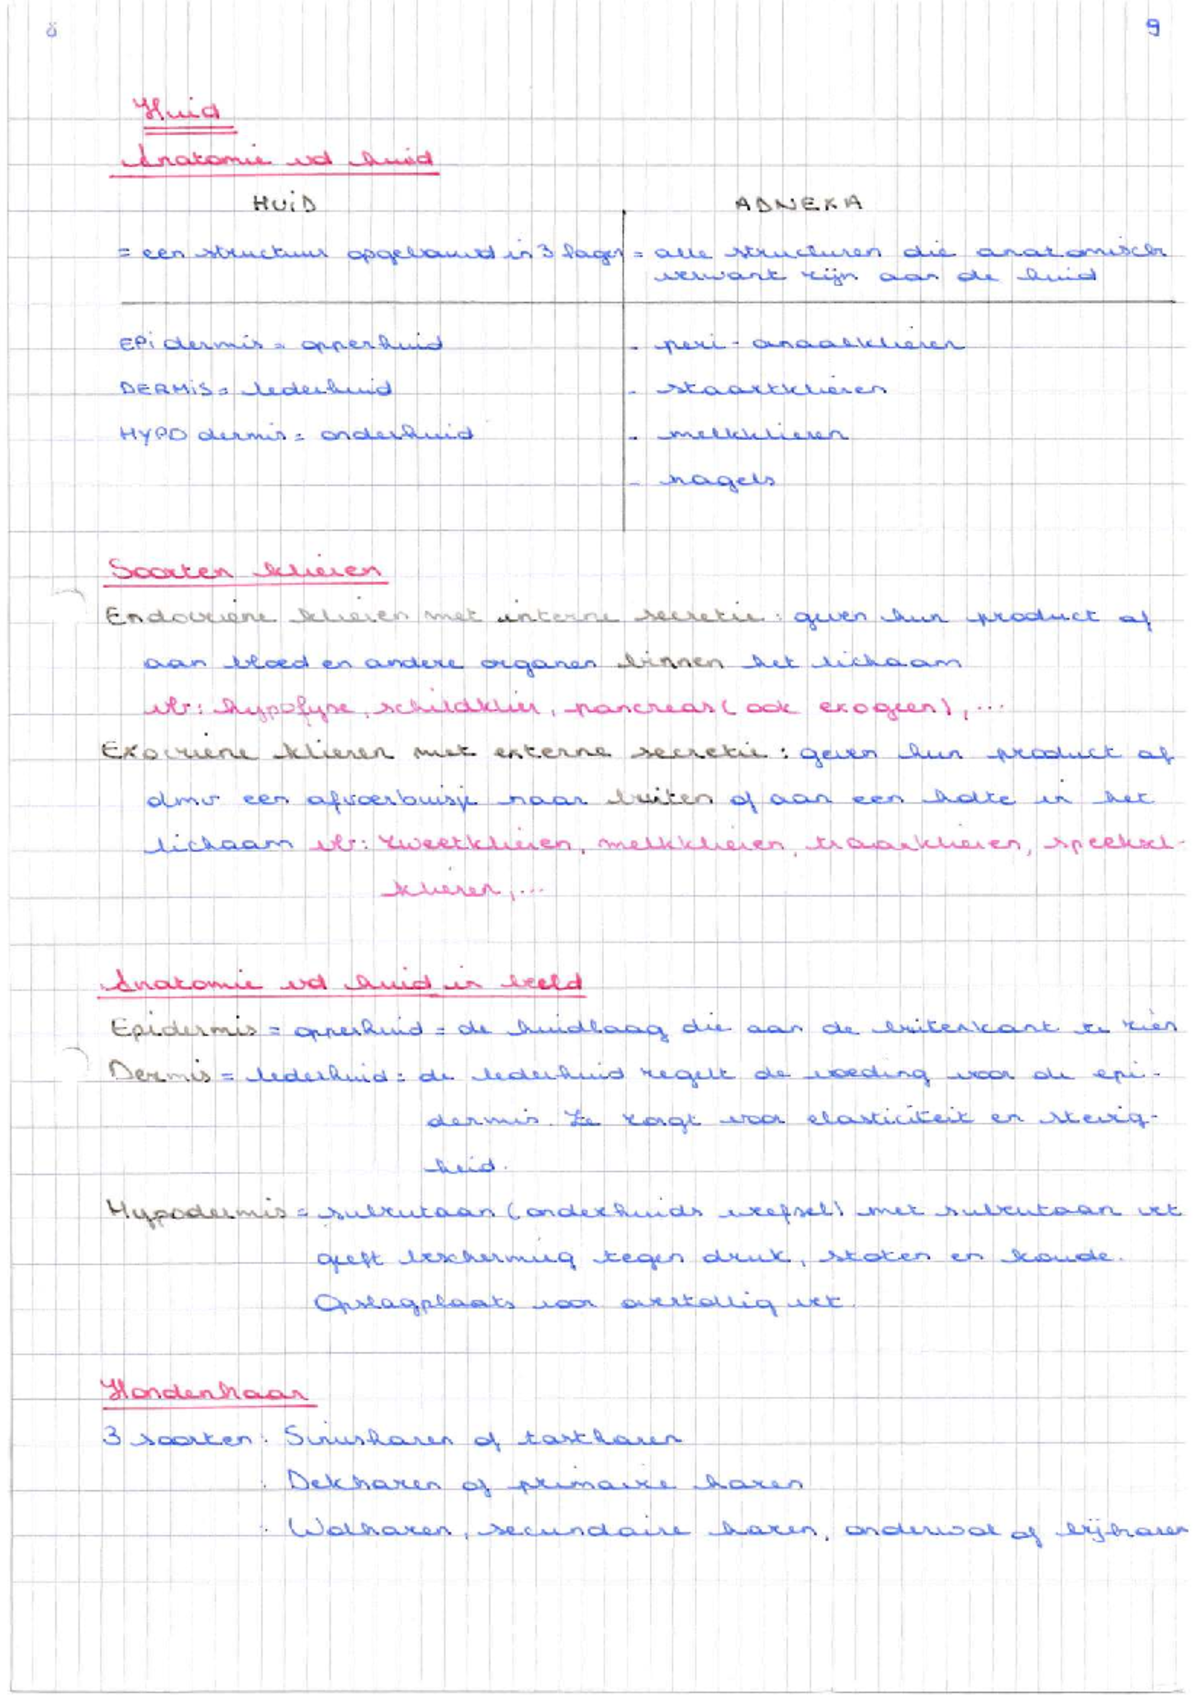 9
Huid
Anatomie vd huid
HUID ADNEKA
= een structuur opgebouwd in 3 lagen = alle structuren die anatomisch
verwant zijn aan de huid
EPidermis = opperhuid - peri-anaalklieren
DERMIS = lederhuid - staartklieren
HYPOdermis = onderhuid - melkklieren
- nagels
Soorten klieren
Endocriene klieren met interne secretie : geven hun product af
aan bloed en andere organen binnen het lichaam
vb: hypofyse, schildklier, pancreas (ook exogeen), ...
Exocriene klieren met externe secretie : geven hun product af
dmv een afvoerbuisje naar buiten of aan een holte in het
lichaam vb: zweetklieren, melkklieren, traanklieren, speeksel-
klieren, ...
Anatomie vd huid in beeld
Epidermis = opperhuid = de huidlaag die aan de buitenkant te zien
Dermis = lederhuid : de lederhuid regelt de voeding voor de epi-
dermis. Ze zorgt voor elasticiteit en stevig-
heid.
Hypodermis = subcutaan (onderhuids weefsel) met subcutaan vet
geeft bescherming tegen druk, stoten en koude.
Opslagplaats voor overtollig vet.
Hondenhaar
3 soorten : Sinusharen of tastharen
: Dekharen of primaire haren
: Wolharen, secundaire haren, onderwol of bijharen